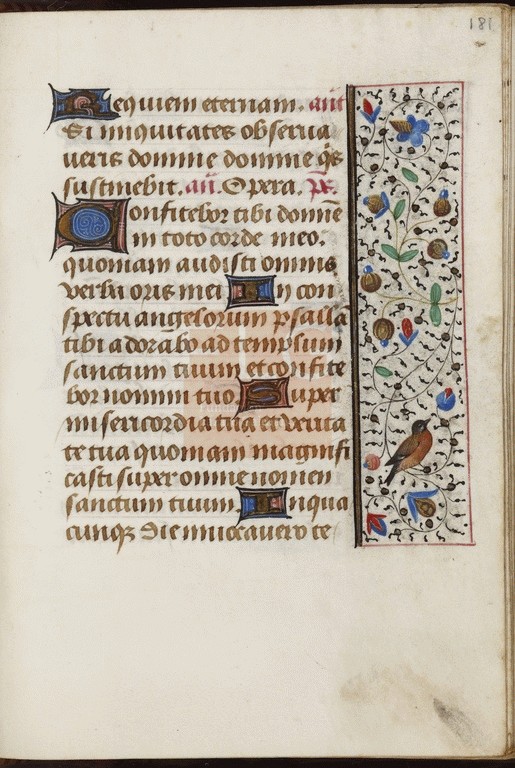 181
Requiem eternam. añt
Si iniquitates obserua
ueris domine domine q̄s
sustinebit. añ. Opera. ps̄.
Confitebor tibi domine
in toto corde meo.
quoniam audisti omnia
verba oris mei In con
spectu angelorum psalla
tibi adorabo ad templum
sanctum tuum et confite
bor nomini tuo. Super
misericordia tua et verita
te tua quoniam magnifi
casti super omne nomen
sanctum tuum. In qua
cunqꝫ die inuocauero te